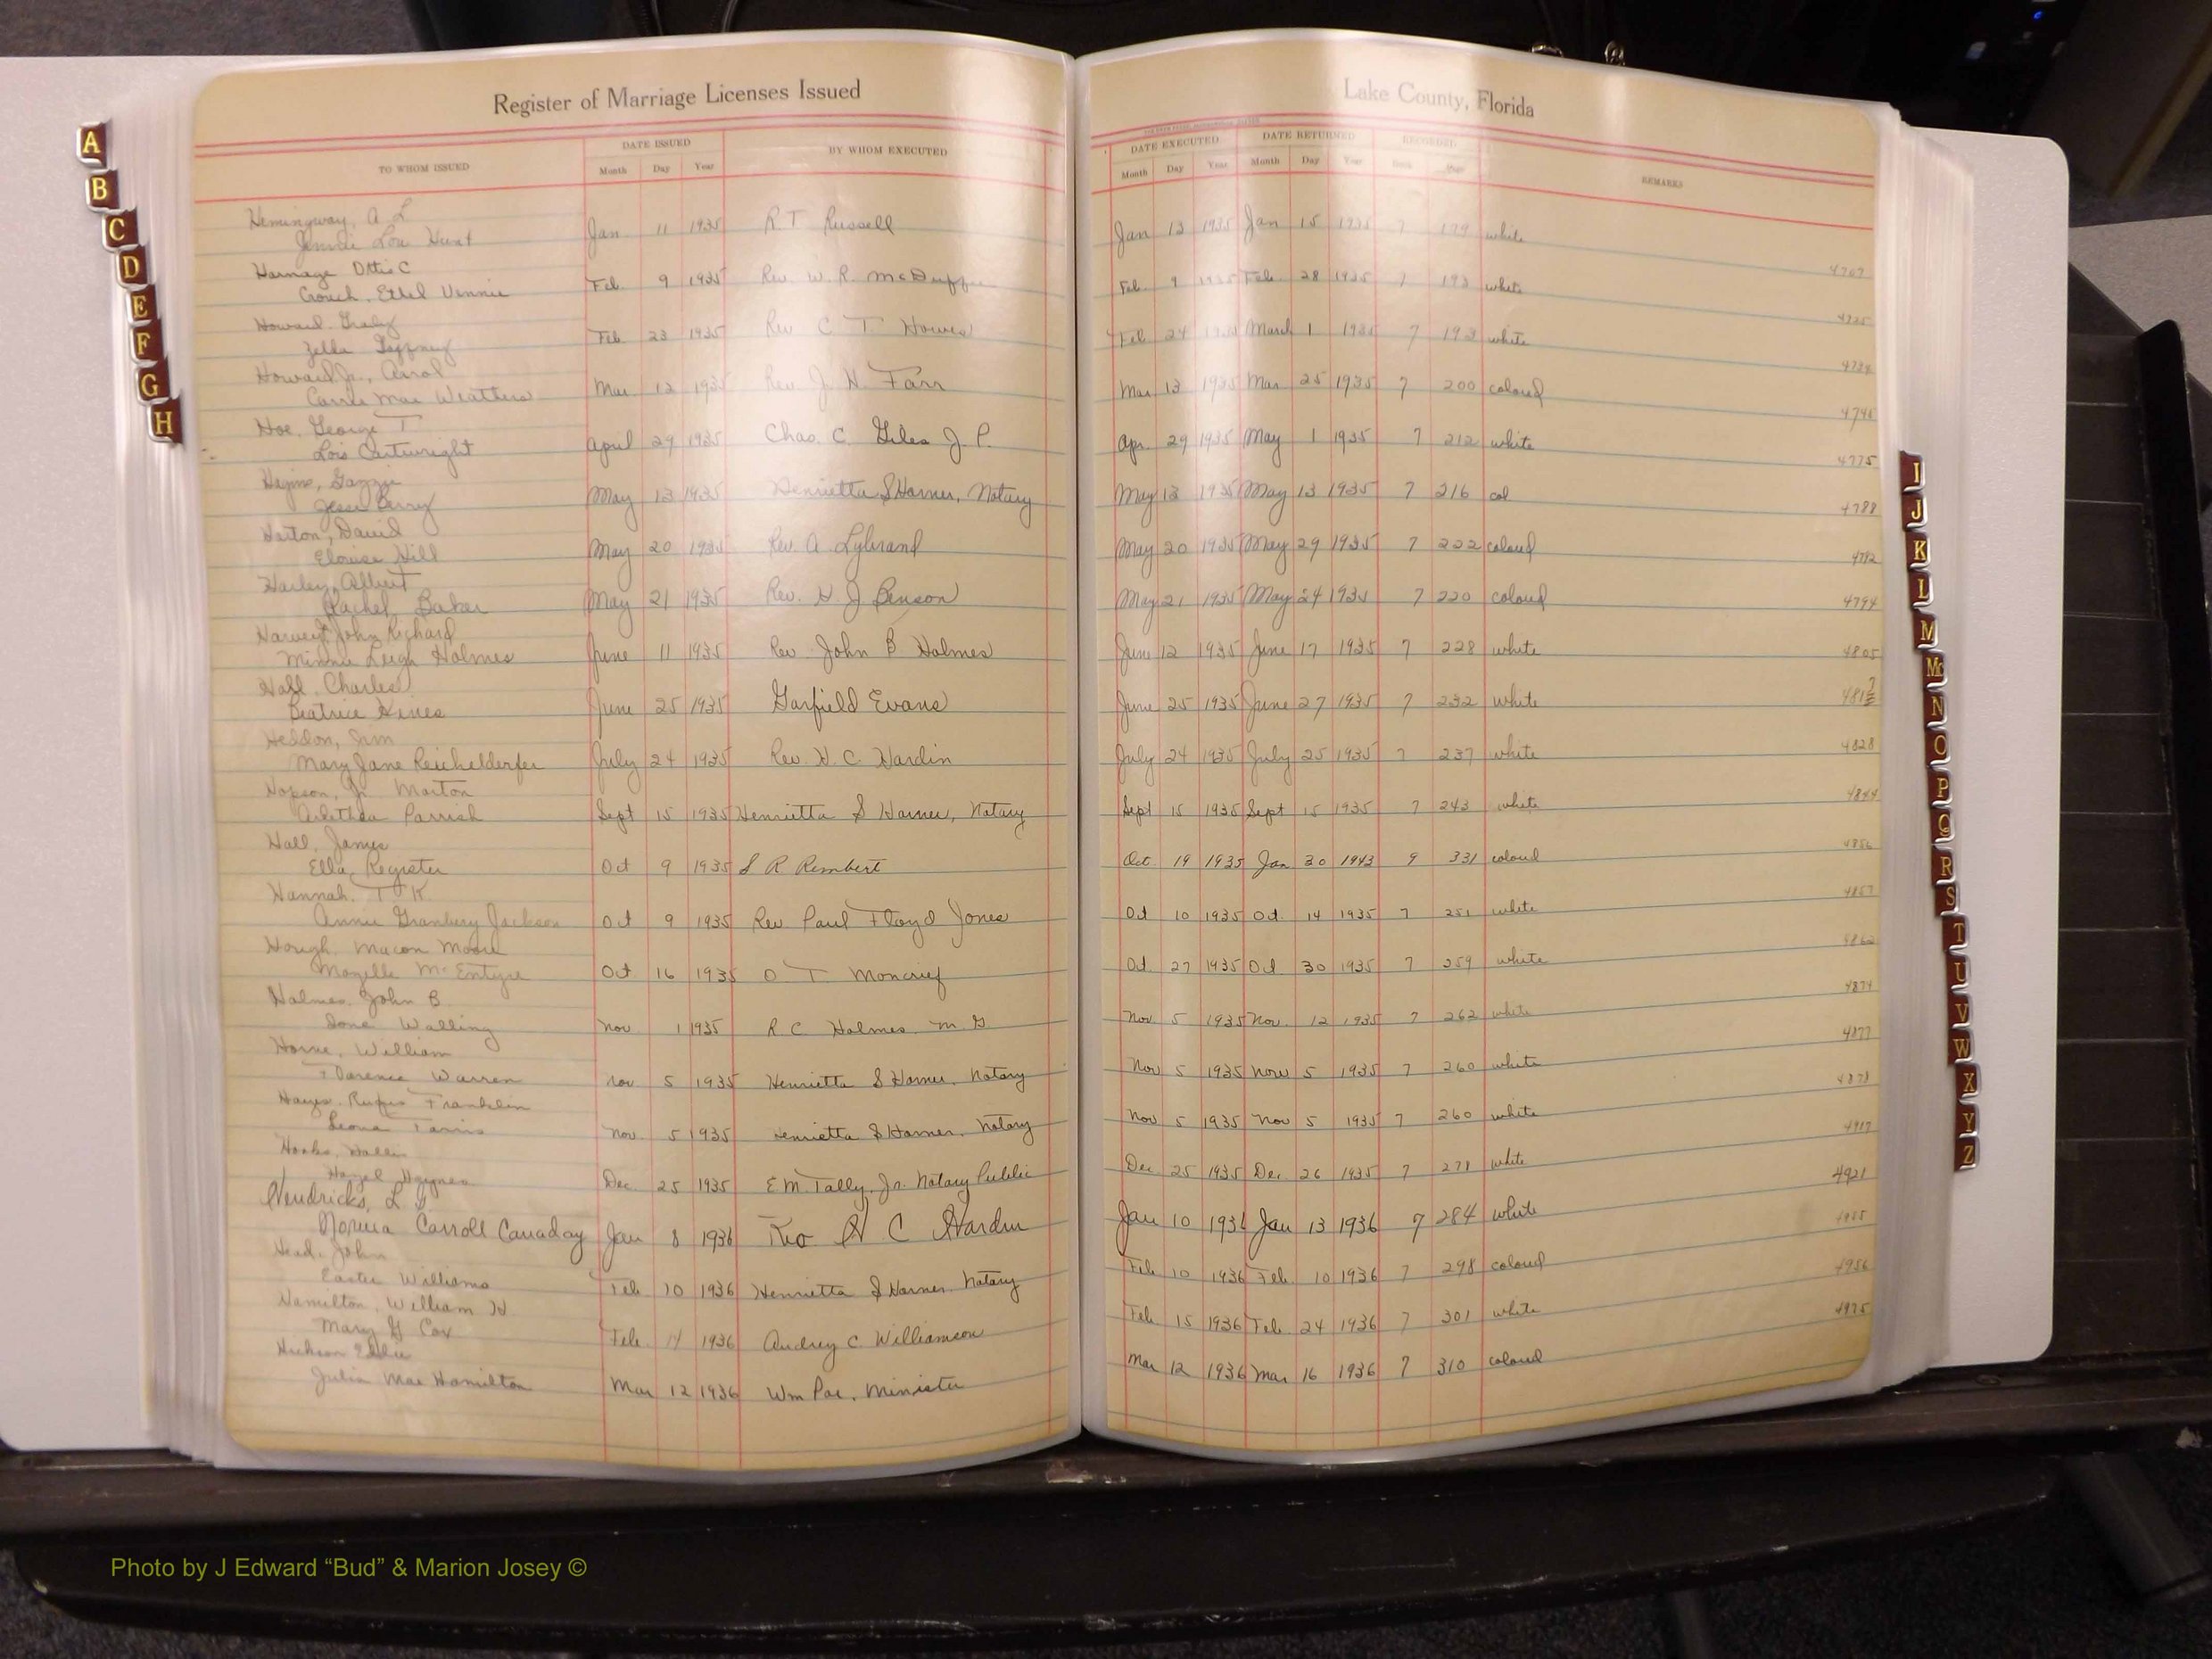 Register of Marriage Licenses Issued
Lake County, Florida
TO WHOM ISSUED
DATE ISSUED
Month Day Year
BY WHOM EXECUTED
DATE EXECUTED
Month Day Year
DATE RETURNED
Month Day Year
RECORDED
Book Page
REMARKS
Hemingway, A L
Jennie Lou Hunt Jan 11 1935 R T Russell Jan 13 1935 Jan 15 1935 7 179 white
4707
Harnage Ottis C
Crouch, Ethel Vennie Feb 9 1935 Rev. W. R. McDuffie Feb. 9 1935 Feb. 28 1935 7 193 white
4725
Howard, Grady
Zella Gaffney Feb 23 1935 Rev C T. Howes Feb 24 1935 March 1 1935 7 193 white
Howard Jr., Carrol
Carrie Mae Weathers Mar 12 1935 Rev J. H. Farr Mar 13 1935 Mar 25 1935 7 200 colored
4745
Hoe, George T
Lois Cartwright April 29 1935 Chas. C. Giles J. P. Apr. 29 1935 May 1 1935 7 212 white
4775
Jesse Berry May 13 1935 Henrietta S Harner, Notary May 13 1935 May 13 1935 7 216 col
4788
Harton, David
Elouise Hill May 20 1935 Rev A Lybrand May 20 1935 May 29 1935 7 222 colored
4792
Harley, Albert
Rachel Baker May 21 1935 Rev. H J Benson May 21 1935 May 24 1935 7 220 colored
4794
Harvey, John Richard
Minnie Leigh Holmes June 11 1935 Rev. John B. Holmes June 12 1935 June 17 1935 7 228 white
4805
Hall, Charles
Beatrice Hines June 25 1935 Garfield Evans June 25 1935 June 27 1935 7 232 white
Heddon, Jim
Mary Jane Reichelderfer July 24 1935 Rev. H. C. Hardin July 24 1935 July 25 1935 7 237 white
4828
Hopson, Jr. Marton
Arlethea Parrish Sept 15 1935 Henrietta S Harner, Notary Sept 15 1935 Sept 15 1935 7 243 white
4844
Hall, James
Ella Register Oct 9 1935 S R Rembert Oct. 19 1935 Jan 30 1943 9 331 colored
4856
Hannah, T K
Annie Granbery Jackson Oct 9 1935 Rev. Paul Floyd Jones Oct 10 1935 Oct. 14 1935 7 251 white
4857
Hough, Macon Moore
Mozelle McEntyre Oct 16 1935 O T Moncrief Oct. 27 1935 Oct 30 1935 7 259 white
Holmes, John B.
Walling Nov 1 1935 R C Holmes M. G. Nov. 5 1935 Nov. 12 1935 7 262 white
4874
Horne, William
Florence Warren Nov 5 1935 Henrietta S Harner, Notary Nov 5 1935 Nov 5 1935 7 260 white
4877
Hayes, Rufus Franklin
Leona Farris Nov. 5 1935 Henrietta S Harner, Notary Nov 5 1935 Nov 5 1935 7 260 white
4878
Hooks,
Hazel Haynes Dec 25 1935 E M. Tally, Jr. Notary Public Dec 25 1935 Dec. 26 1935 7 278 white
4917
Hendricks, L
Norma Carroll Canaday Jan 8 1936 Rev H C Hardin Jan 10 1936 Jan 13 1936 7 284 white
4921
Head, John
Easter Williams Feb 10 1936 Henrietta S Harner, Notary Feb 10 1936 Feb. 10 1936 7 298 colored
Hamilton, William H
Mary G Cox Feb. 14 1936 Audrey C Williamson Feb 15 1936 Feb. 24 1936 7 301 white
4956
Eddie
Julia Mae Hamilton Mar 12 1936 Wm Poe, Minister Mar 12 1936 Mar 16 1936 7 310 colored
4975
A
B
C
D
E
F
G
H
I
J
K
L
M
Mc
N
O
P
Q
R
S
T
U
V
W
X
Y
Z
Photo by J Edward “Bud” & Marion Josey ©